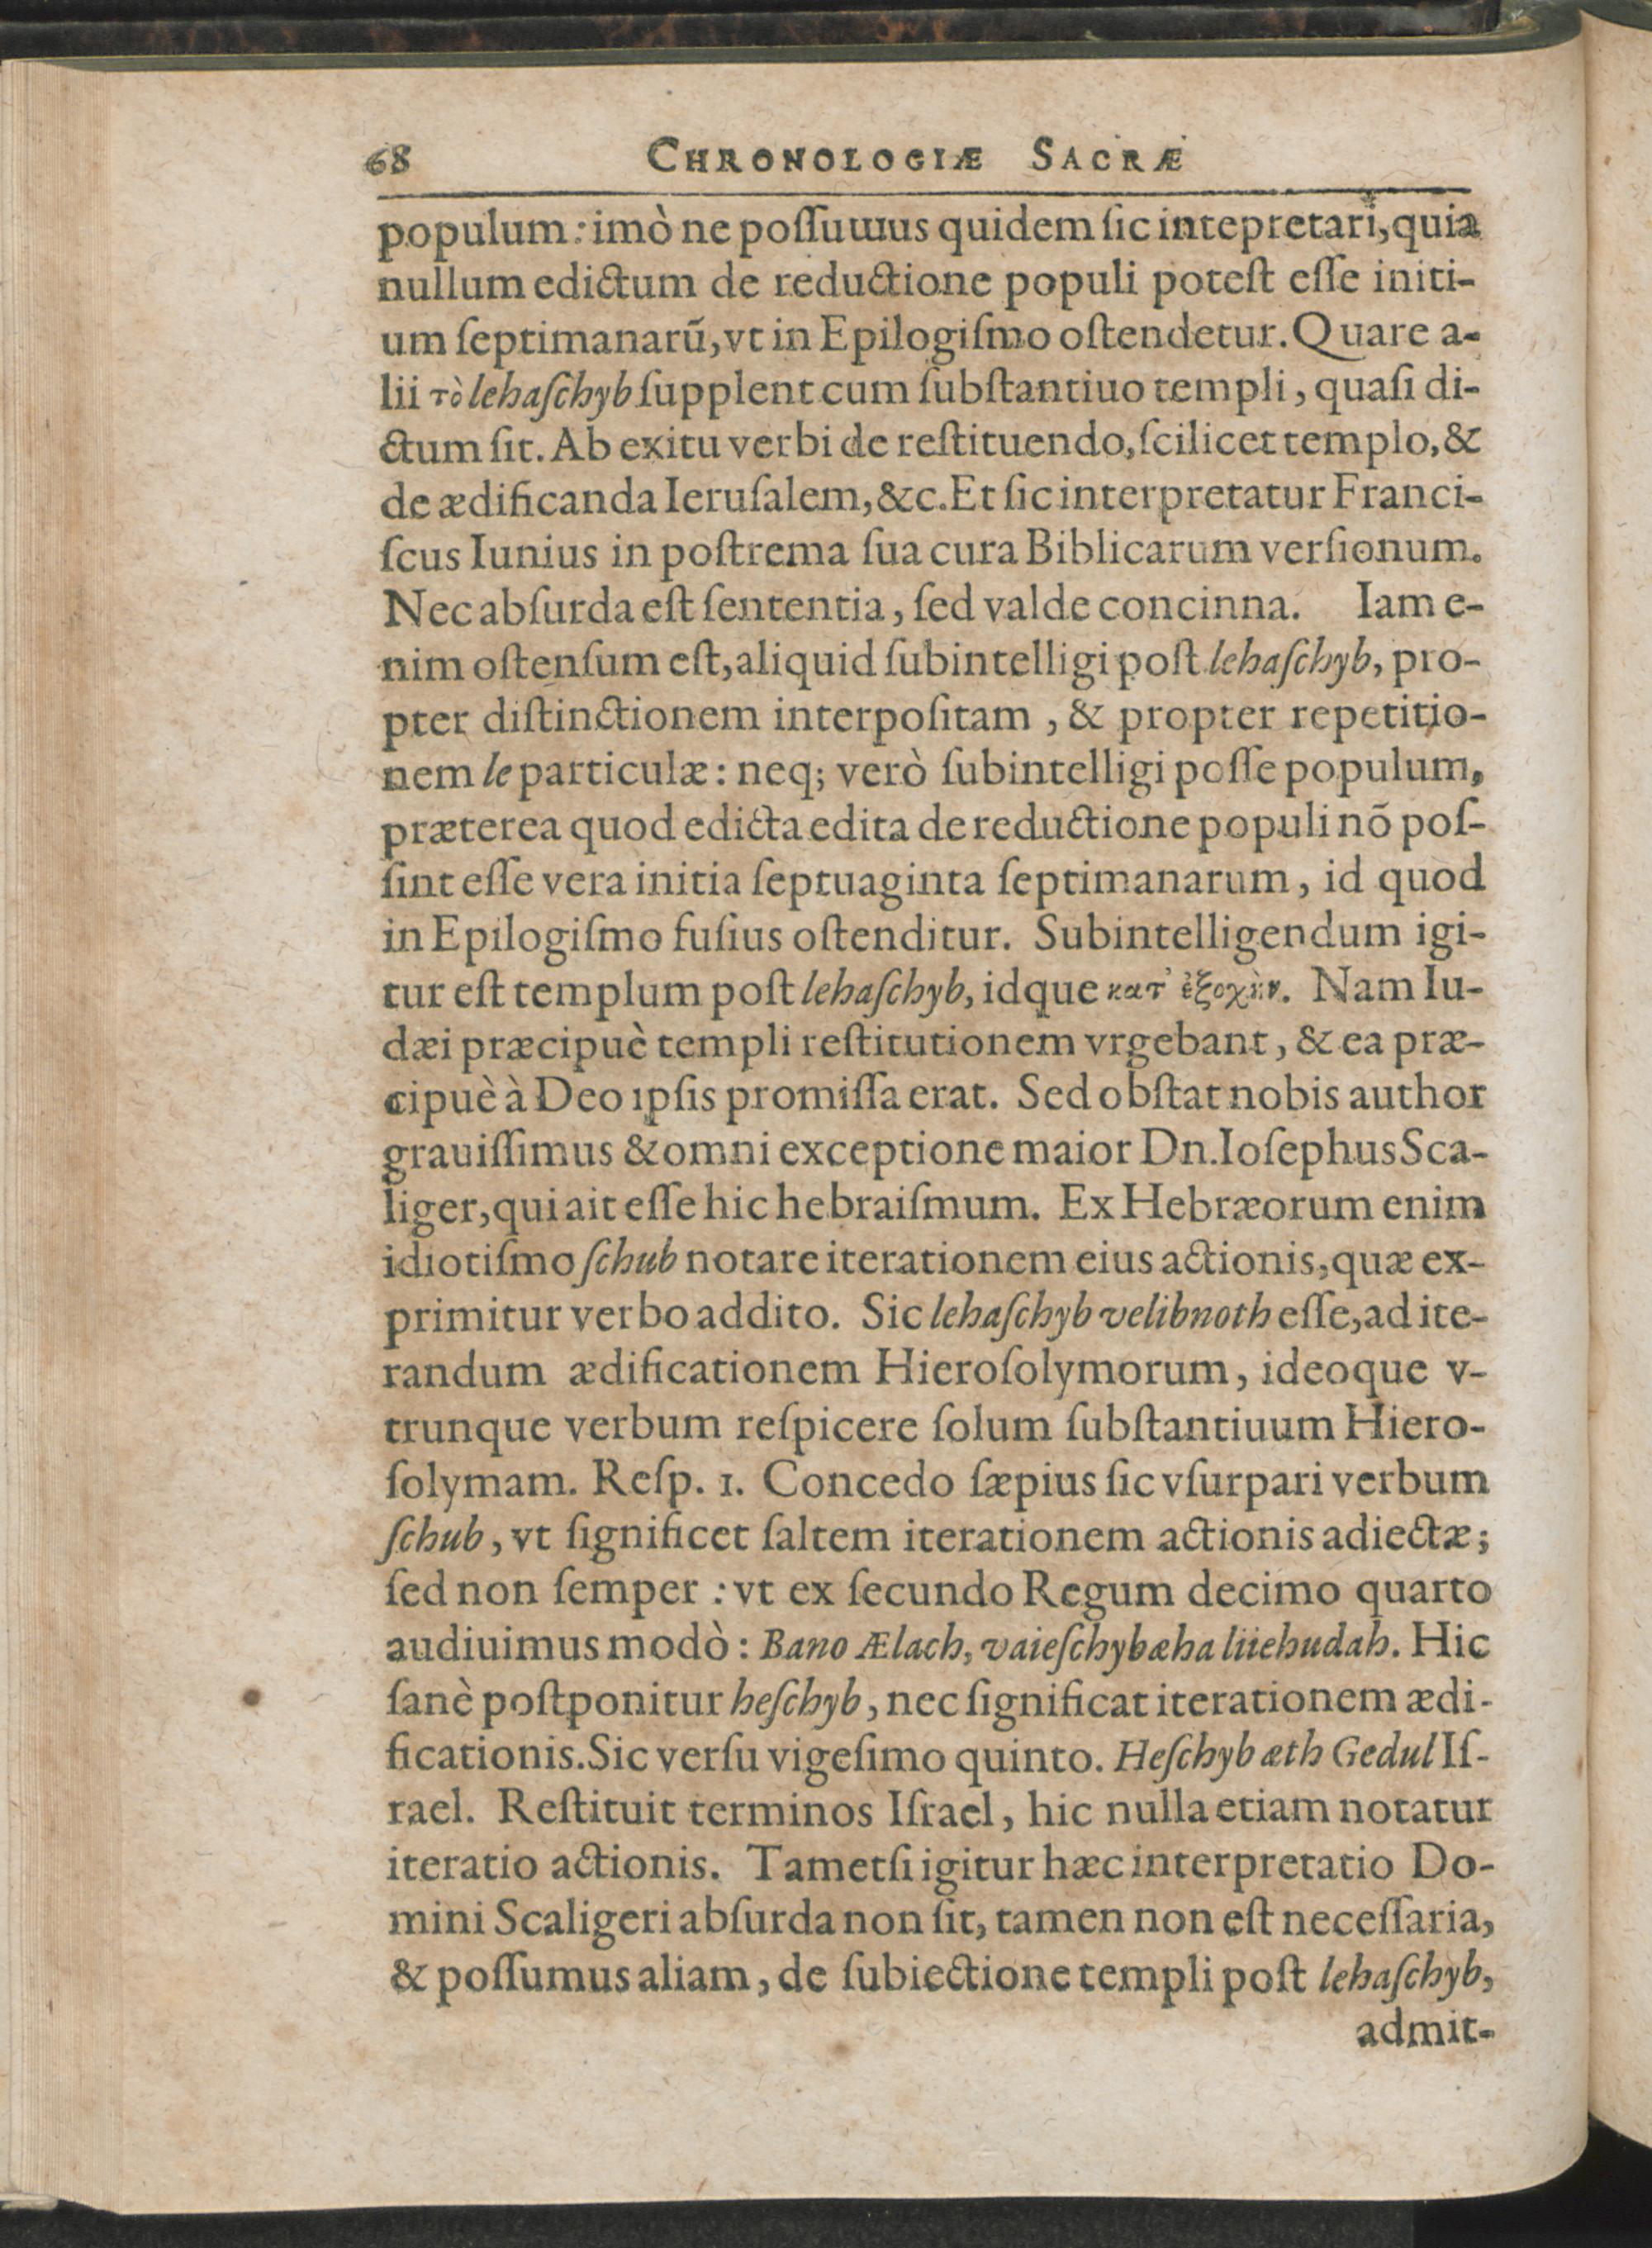 68 CHRONOLOGIÆ SACRÆ
populum: imò ne poſſumus quidem ſic intepretari, quia
nullum edictum de reductione populi poteſt eſſe initi-
um ſeptimanarũ, vt in Epilogiſmo oſtendetur. Quare a-
lii τὸ lehaſchyb ſupplent cum ſubſtantiuo templi, quaſi di-
ctum ſit. Ab exitu verbi de reſtituendo, ſcilicet templo, &
de ædificanda Ieruſalem, &c. Et ſic interpretatur Franci-
ſcus Iunius in poſtrema ſua cura Biblicarum verſionum.
Nec abſurda eſt ſententia, ſed valde concinna. Iam e-
nim oſtenſum eſt, aliquid ſubintelligi poſt lehaſchyb, pro-
pter diſtinctionem interpoſitam, & propter repetitio-
nem le particulæ: neq; verò ſubintelligi poſſe populum,
præterea quod edicta edita de reductione populi nõ poſ-
ſint eſſe vera initia ſeptuaginta ſeptimanarum, id quod
in Epilogiſmo fuſius oſtenditur. Subintelligendum igi-
tur eſt templum poſt lehaſchyb, idque κατ᾽ ἐξοχὴν. Nam Iu-
dæi præcipuè templi reſtitutionem vrgebant, & ea præ-
cipuè à Deo ipſis promiſſa erat. Sed obſtat nobis author
grauiſſimus & omni exceptione maior Dn. Ioſephus Sca-
liger, qui ait eſſe hic hebraiſmum. Ex Hebræorum enim
idiotiſmo ſchub notare iterationem eius actionis, quæ ex-
primitur verbo addito. Sic lehaſchyb velibnoth eſſe, ad ite-
randum ædificationem Hieroſolymorum, ideoque v-
trunque verbum reſpicere ſolum ſubſtantiuum Hiero-
ſolymam. Reſp. 1. Concedo ſæpius ſic vſurpari verbum
ſchub, vt ſignificet ſaltem iterationem actionis adiectæ;
ſed non ſemper: vt ex ſecundo Regum decimo quarto
audiuimus modò: Bano Ælach, vaieſchybæha liiehudah. Hic
ſanè poſtponitur heſchyb, nec ſignificat iterationem ædi-
ficationis. Sic verſu vigeſimo quinto. Heſchyb æth Gedul Iſ-
rael. Reſtituit terminos Iſrael, hic nulla etiam notatur
iteratio actionis. Tametſi igitur hæc interpretatio Do-
mini Scaligeri abſurda non ſit, tamen non eſt neceſſaria,
& poſſumus aliam, de ſubiectione templi poſt lehaſchyb,
admit-